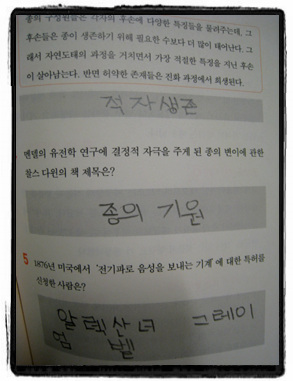 종의 구성원들은 각자의 후손에 다양한 특징들을 물려주는데, 그
후손들은 종이 생존하기 위해 필요한 수보다 더 많이 태어난다. 그
래서 자연도태의 과정을 거치면서 가장 적절한 특징을 지닌 후손
이 살아남는다. 반면 허약한 존재들은 진화 과정에서 희생된다.
적자생존
멘델의 유전학 연구에 결정적 자극을 주게 된 종의 변이에 관한
찰스 다윈의 책 제목은?
종의 기원
5
1876년 미국에서 '전기파로 음성을 보내는 기계'에 대한 특허를
신청한 사람은?
알렉산더 그레이
엄 벨